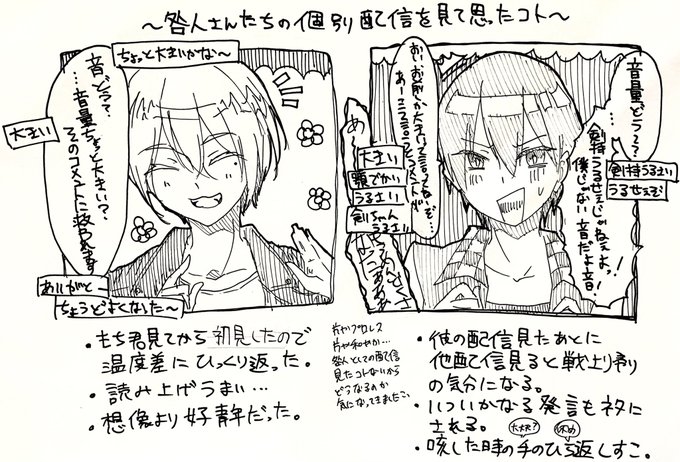 ～咎人さんたちの個別配信を見て思ったコト～
ちょっと大きいかな～
音どう？
…音量ちょっと大きい？
そのコメントに救われます
大きい
ありがと～
ちょうどよくなった～
音量どう～？
剣持うるさい
うるせぇぞ
剣持うるせぇじゃねぇよっ！
僕じゃない 音だよ音！
おい お前らが大きいって言ってるぞ…
あ～
大きい
顎でかい
うるさい
剣ちゃん
うるさい
・もち君見てから初見したので
温度差にひっくり返った。
・読み上げうまい…
・想像より好青年だった。
片やフサレス
片や和やか…
咎人としての配信
見たコトないから
どうなるのか
気になってきましたこい
・彼の配信見たあとに
他配信見ると戦士り狩り
の気分になる。
・いついかなる発言もネタに
される。
大丈夫？
休め
・咳した時の手のひら返しすこ。